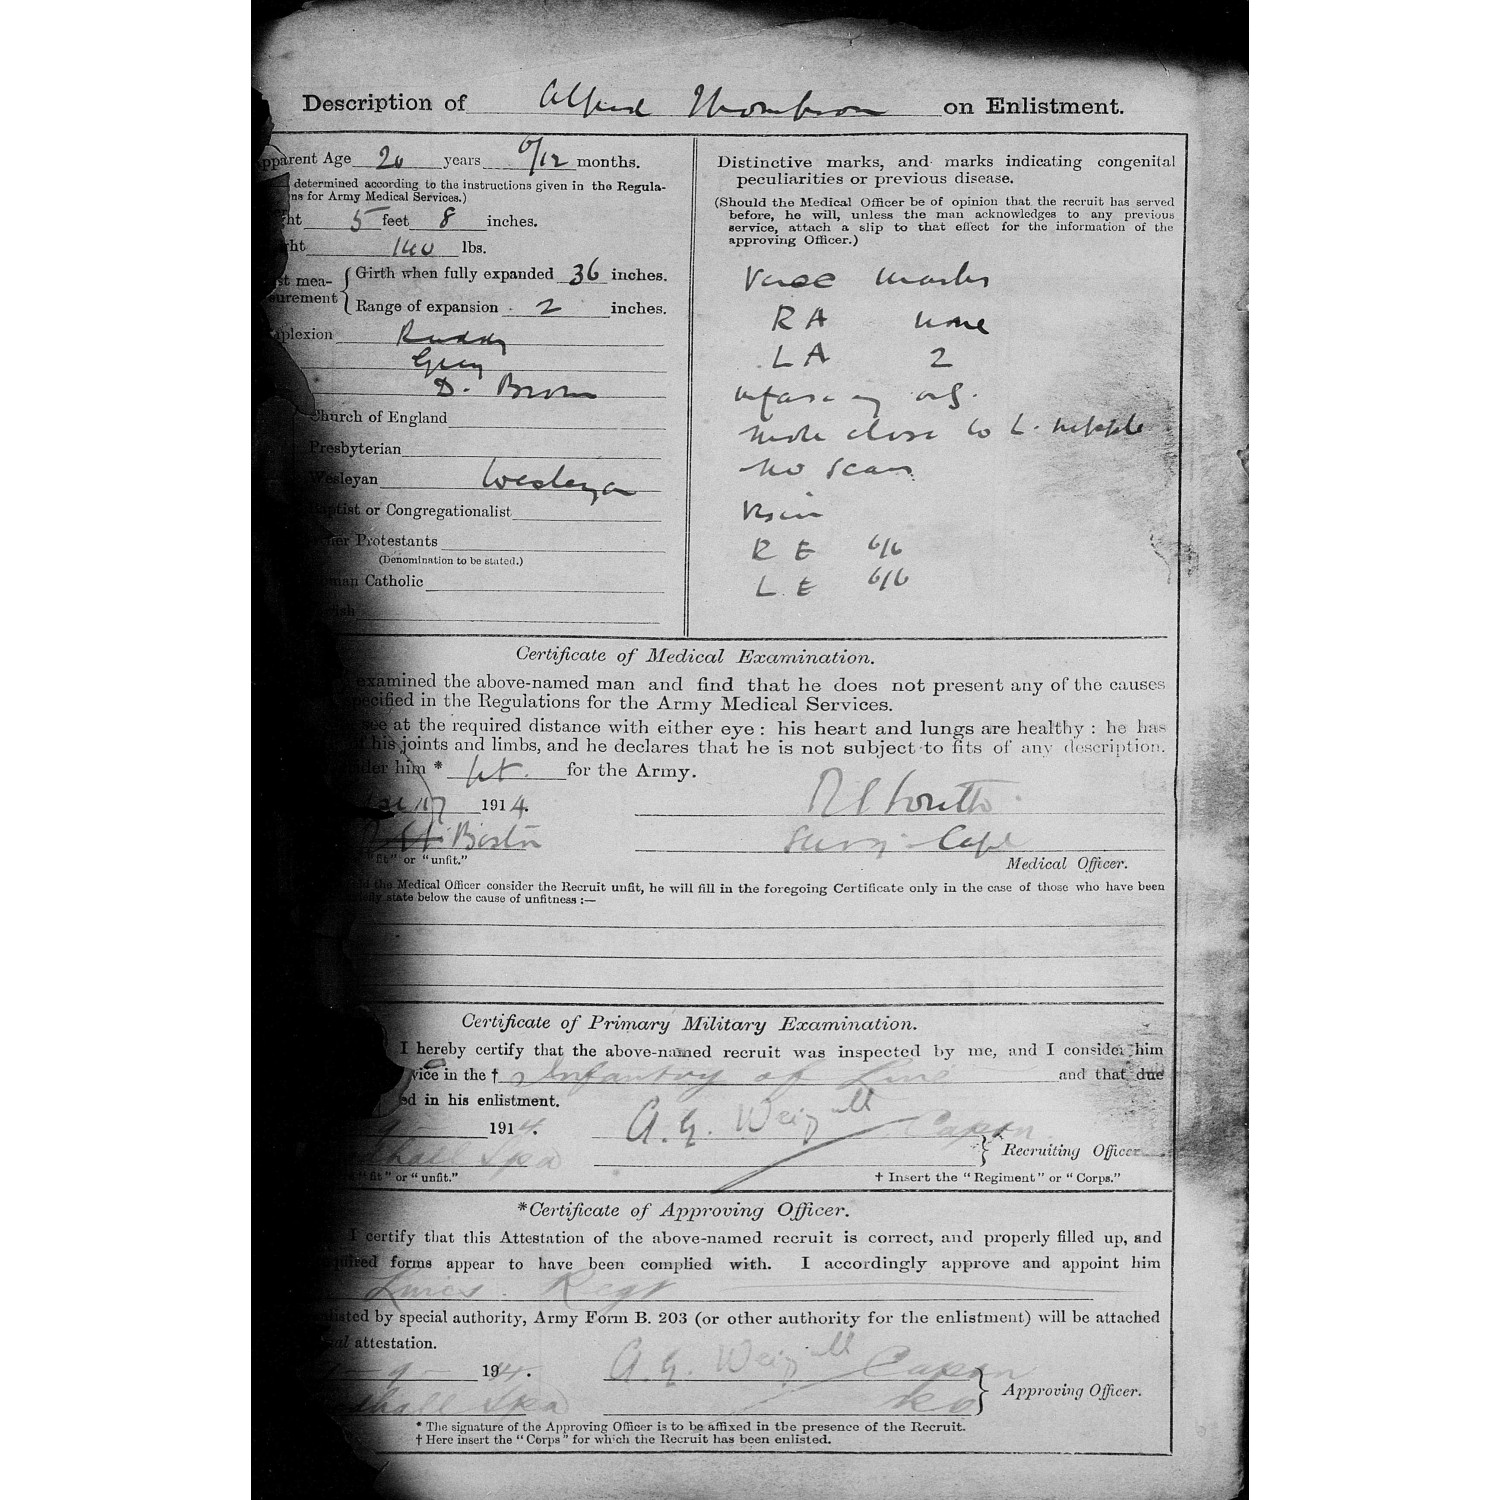 Description of Alfred Thompson on Enlistment.
pparent Age 20 years 0/12 months.
determined according to the instructions given in the Regula-
ns for Army Medical Services.)
ht 5 feet 8 inches.
ht 140 lbs.
st mea-
urement
Girth when fully expanded 36 inches.
Range of expansion 2 inches.
plexion Ruddy
Grey
D. Brown
Church of England
Presbyterian
Wesleyan Wesleyan
Baptist or Congregationalist
her Protestants
(Denomination to be stated.)
oman Catholic
wish
Distinctive marks, and marks indicating congenital
peculiarities or previous disease.
(Should the Medical Officer be of opinion that the recruit has served
before, he will, unless the man acknowledges to any previous
service, attach a slip to that effect for the information of the
approving Officer.)
Vacc marks
R A none
L A 2
infancy only.
mole close to L. nipple
no scars
Vision
R E 6/6
L. E 6/6
Certificate of Medical Examination.
examined the above-named man and find that he does not present any of the causes
specified in the Regulations for the Army Medical Services.
see at the required distance with either eye: his heart and lungs are healthy: he has
of his joints and limbs, and he declares that he is not subject to fits of any description.
der him * fit for the Army.
17 1914.
Boston
Surg. Capt
"fit" or "unfit."
Medical Officer.
d the Medical Officer consider the Recruit unfit, he will fill in the foregoing Certificate only in the case of those who have been
iefly state below the cause of unfitness:—
Certificate of Primary Military Examination.
I hereby certify that the above-named recruit was inspected by me, and I consider him
vice in the † Infantry of Line and that due
ed in his enlistment.
9 - 1914. A. G. Weigall Captn
hall Spa
Recruiting Officer
"fit" or "unfit."
† Insert the "Regiment" or "Corps."
*Certificate of Approving Officer.
I certify that this Attestation of the above-named recruit is correct, and properly filled up, and
quired forms appear to have been complied with. I accordingly approve and appoint him
Lincs. Regt
nlisted by special authority, Army Form B. 203 (or other authority for the enlistment) will be attached
nal attestation.
- 9 - 1914. A. G. Weigall Captn
hall Spa
Approving Officer.
* The signature of the Approving Officer is to be affixed in the presence of the Recruit.
† Here insert the "Corps" for which the Recruit has been enlisted.